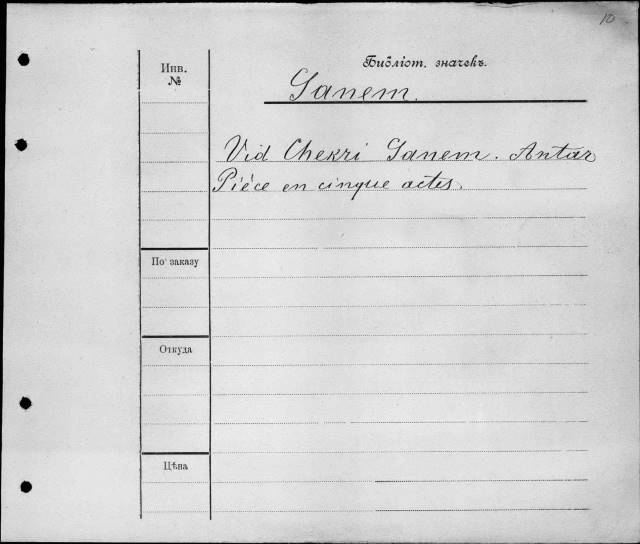 10
Инв.
№
Библіот. значекъ.
Ganem.
Vid Chekri Ganem. Antar
Piéce en cinque actes.
По заказу
Откуда
Цѣна